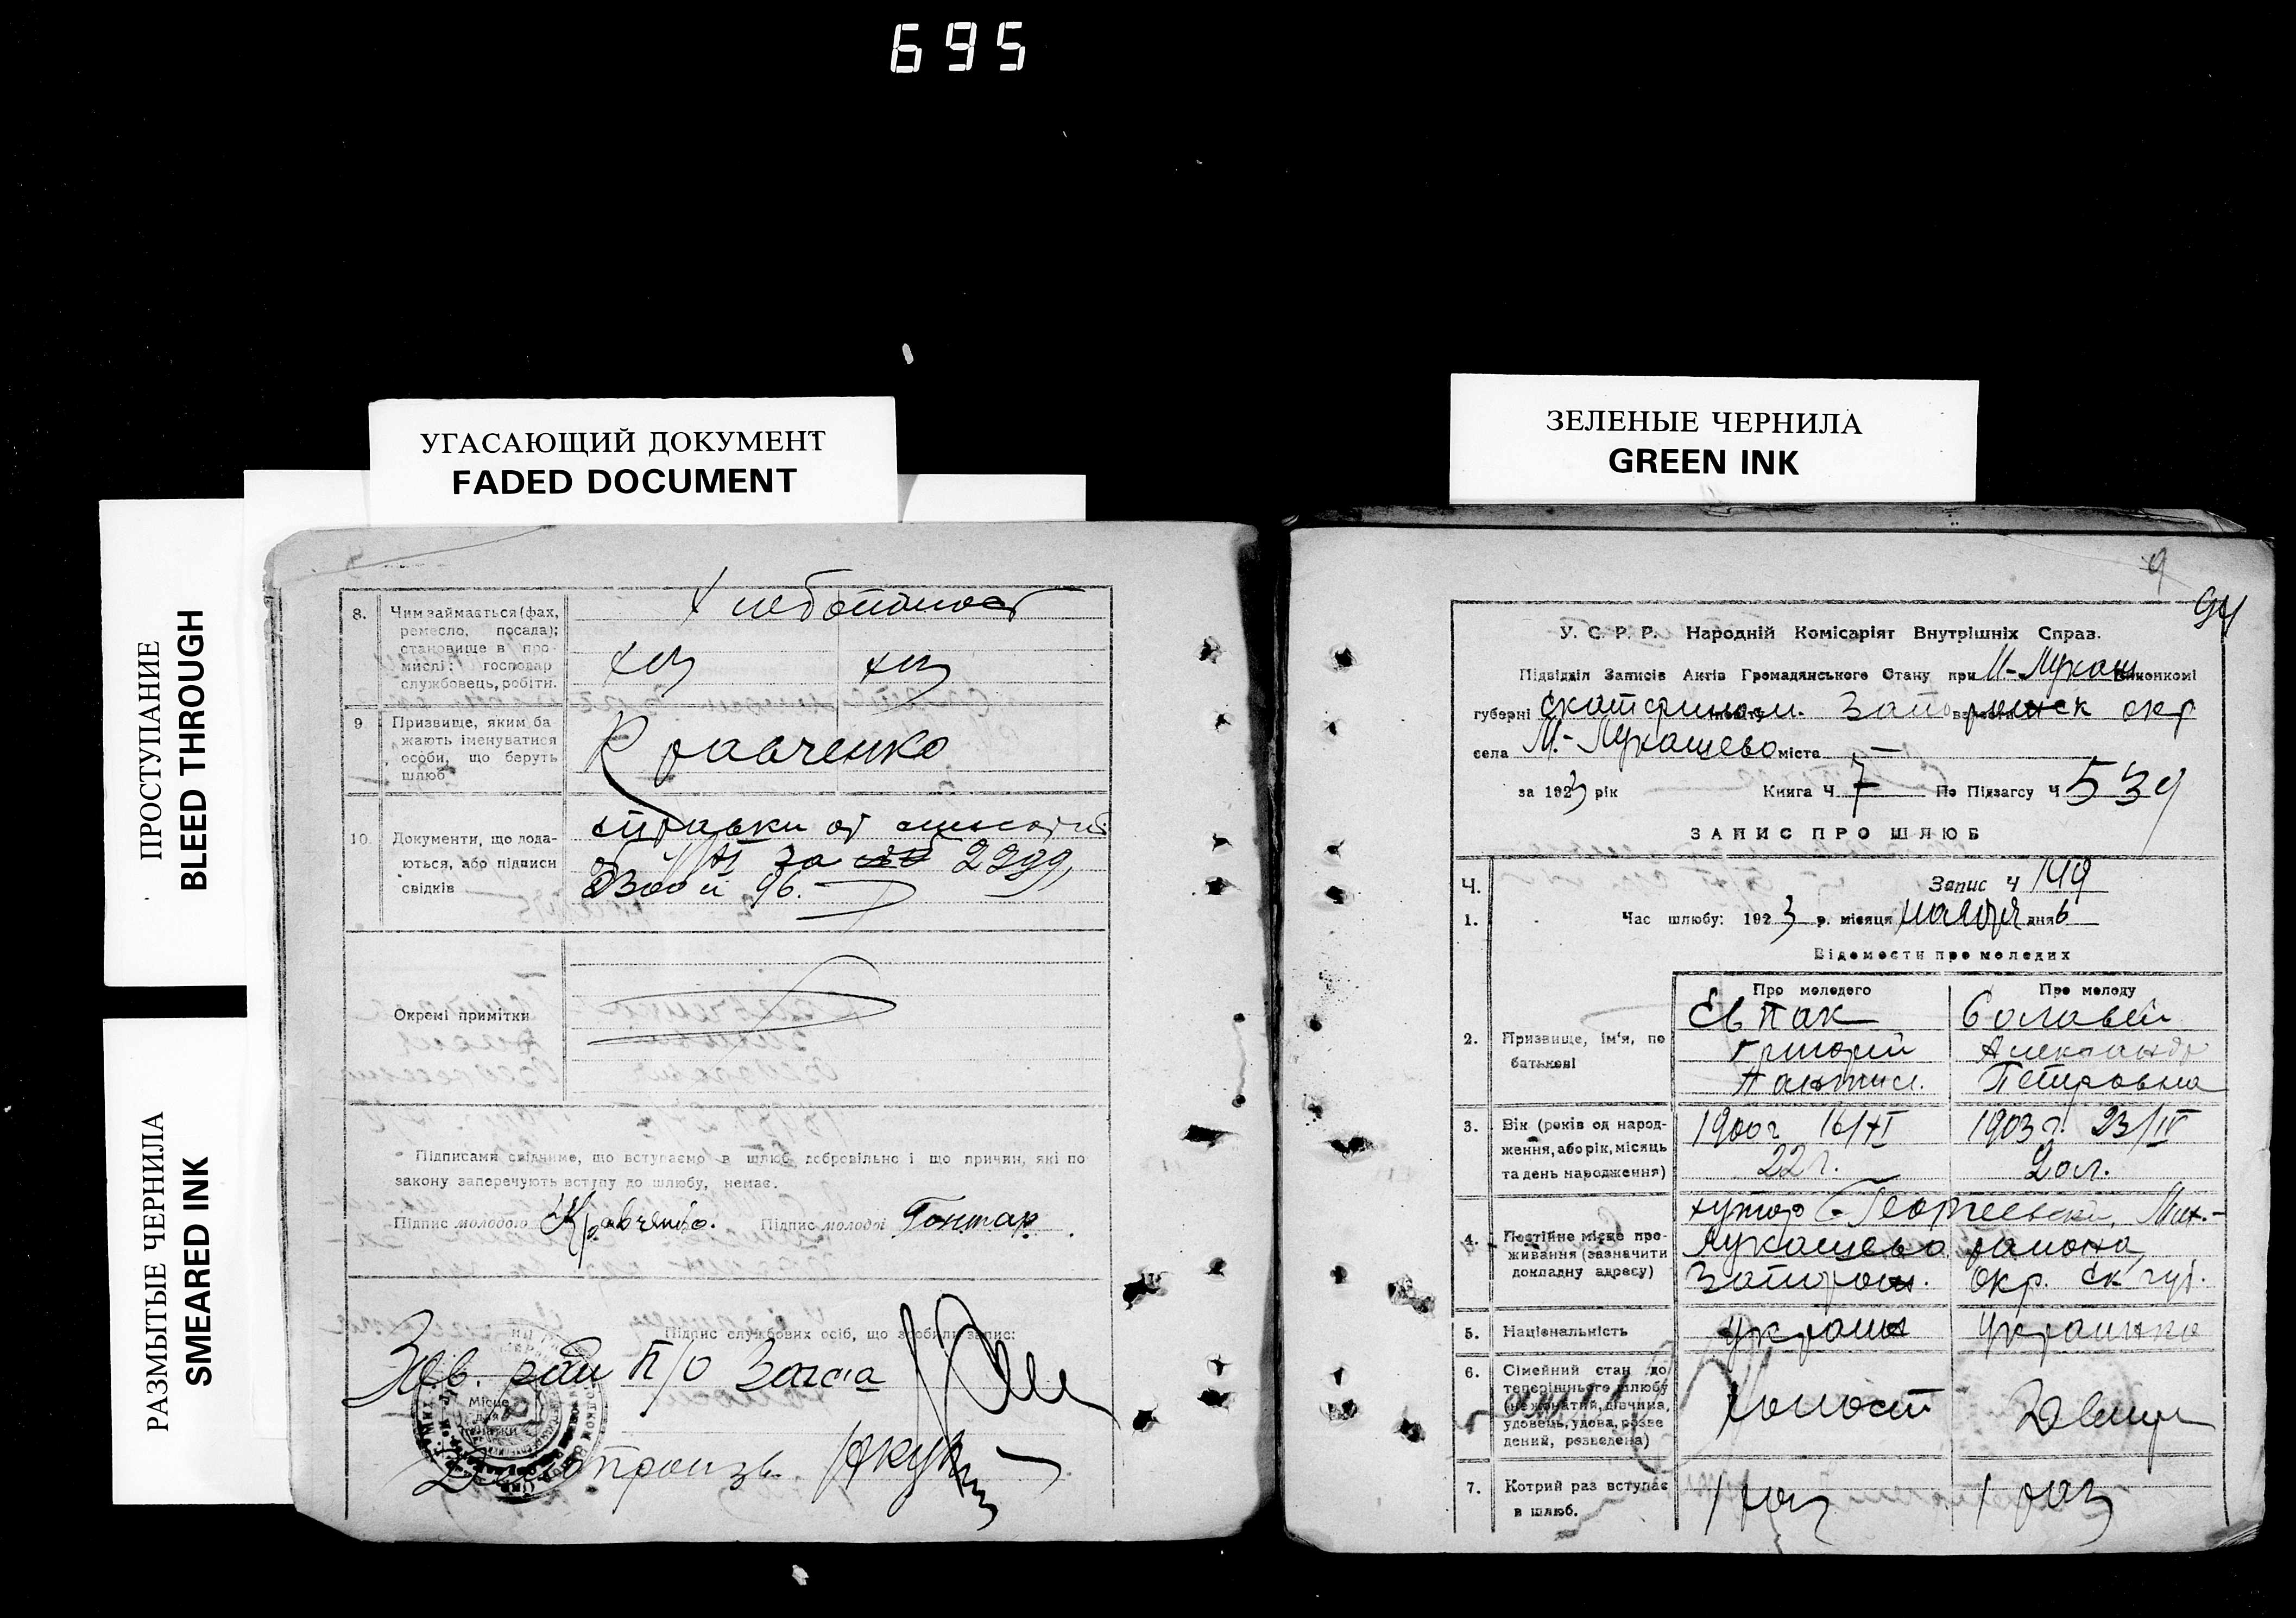 695
УГАСАЮЩИЙ ДОКУМЕНТ
FADED DOCUMENT
ЗЕЛЕНЫЕ ЧЕРНИЛА
GREEN INK
ПРОСТУПАНИЕ
BLEED THROUGH
РАЗМЫТЫЕ ЧЕРНИЛА
SMEARED INK
8. Чим займається (фах,
ремесло, посада);
становище в про-
мислі: господар
службовець, робітн.
хлебопашест
хоз хоз
9. Призвище, яким ба
жають іменуватися
особи, що беруть
шлюб
Кравченко
10. Документи, що дода-
ються, або підписи
свідків
справки от
за 2299,
96.
Окремі примітки
Підписами свідчимо, що вступаємо в шлюб добровільно і що причин, які по
закону заперечують вступу до шлюбу, немає.
Підпис молодого Кравченко. Підпис молодої Гонтар
Підпис службових осіб, що зробили запис:
Зав. рай п/о Загса
Місце
для
печатки
Делопроизв.
9
94
У. С. Р. Р. Народній Комісаріят Внутрішніх Справ.
Підвідділ Записів Актів Громадянського Стану при М.-Лукаш Виконкомі
губерні Екатеринос. Запорожск окр
села М.-Лукашево міста —
за 1923 рік Книга Ч 7 По Підзагсу Ч 539
ЗАПИС ПРО ШЛЮБ
Ч. Запис Ч 149
1. Час шлюбу: 1923 р. місяця ноября дня 6
Відомости про молодих
Про молодого Про молоду
2. Призвище, ім'я, по
батькові
Евпак Соловей
Григорий Александр
Пантил. Петровна
3. Вік (років од народ-
ження, або рік, місяць
та день народження)
1900 г 16/XI 1903 г. 23/IV
22 г. 20 л.
4. Постійне місце про-
живання (зазначити
докладну адресу)
хутор Георгиевский, Мих.-
Лукашево района
Запорож. окр. Ек губ.
5. Національність украин украинка
6. Сімейний стан до
теперішнього шлюбу
(нежонатий, дівчина,
удовець, удова, розве
дений, розведена)
Холост Девиц
7. Котрий раз вступає
в шлюб.
1 раз 1 раз